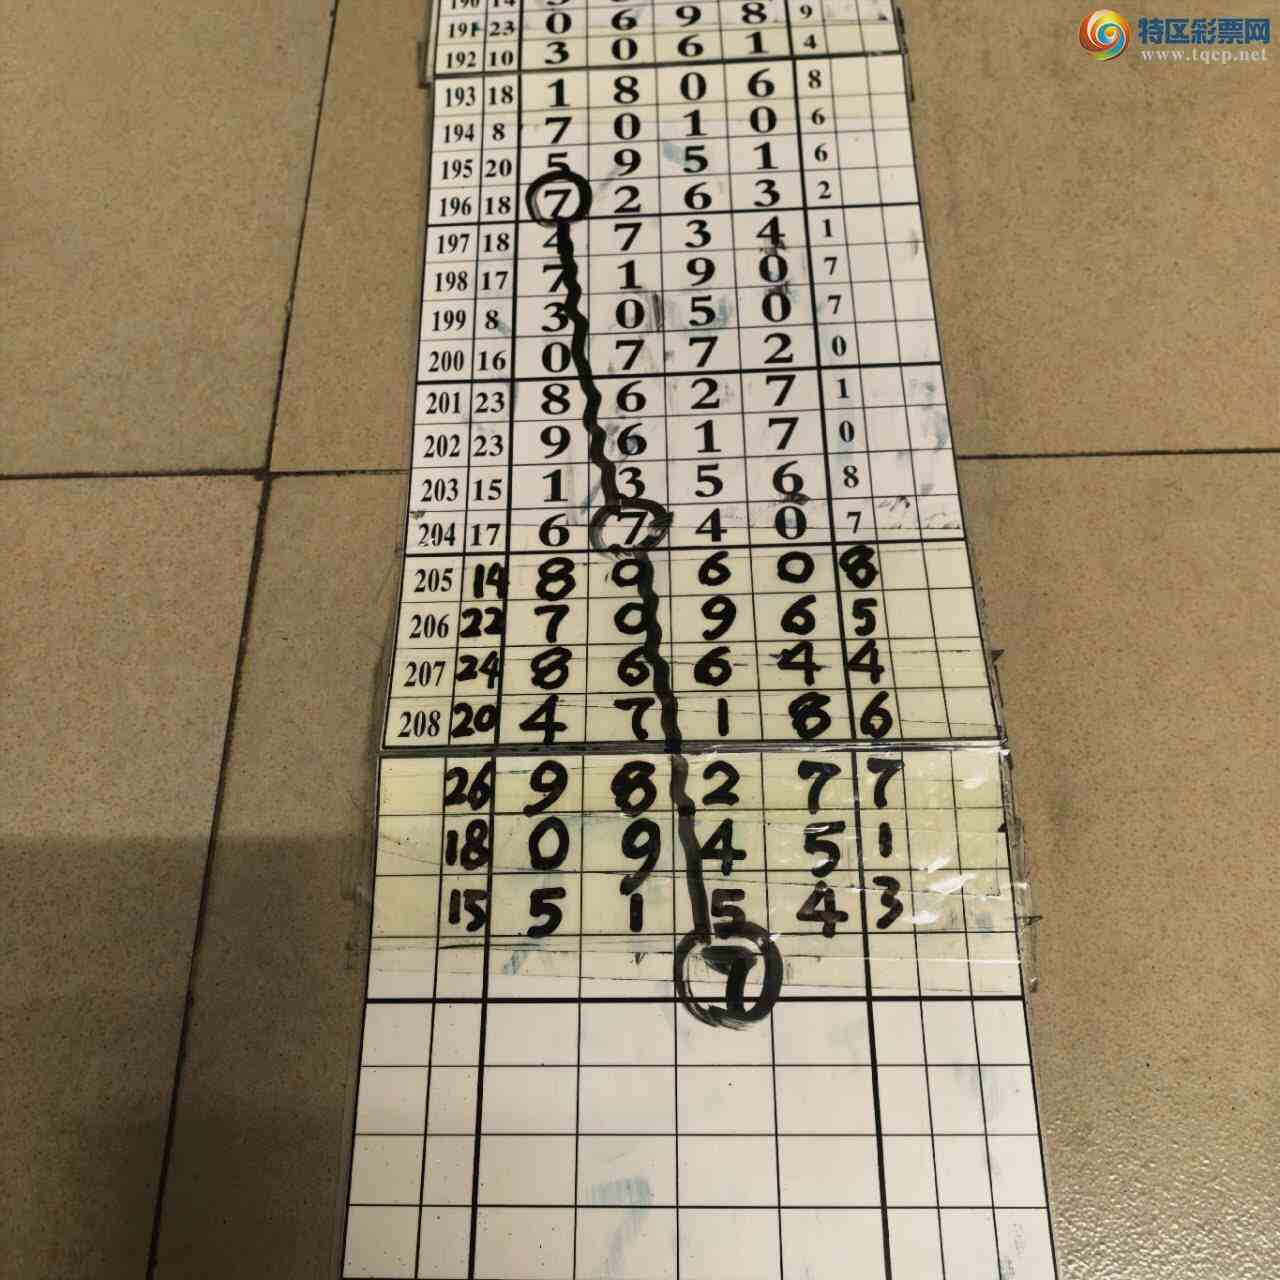 特区彩票网
www.tqcp.net
191 23 0 6 9 8 9
192 10 3 0 6 1 4
193 18 1 8 0 6 8
194 8 7 0 1 0 6
195 20 5 9 5 1 6
196 18 7 2 6 3 2
197 18 4 7 3 4 1
198 17 7 1 9 0 7
199 8 3 0 5 0 7
200 16 0 7 7 2 0
201 23 8 6 2 7 1
202 23 9 6 1 7 0
203 15 1 3 5 6 8
204 17 6 7 4 0 7
205 14 8 0 6 0 8
206 22 7 0 9 6 5
207 24 8 6 6 4 4
208 20 4 7 1 8 6
26 9 8 2 7 7
18 0 9 4 5 1
15 5 1 5 4 3
7